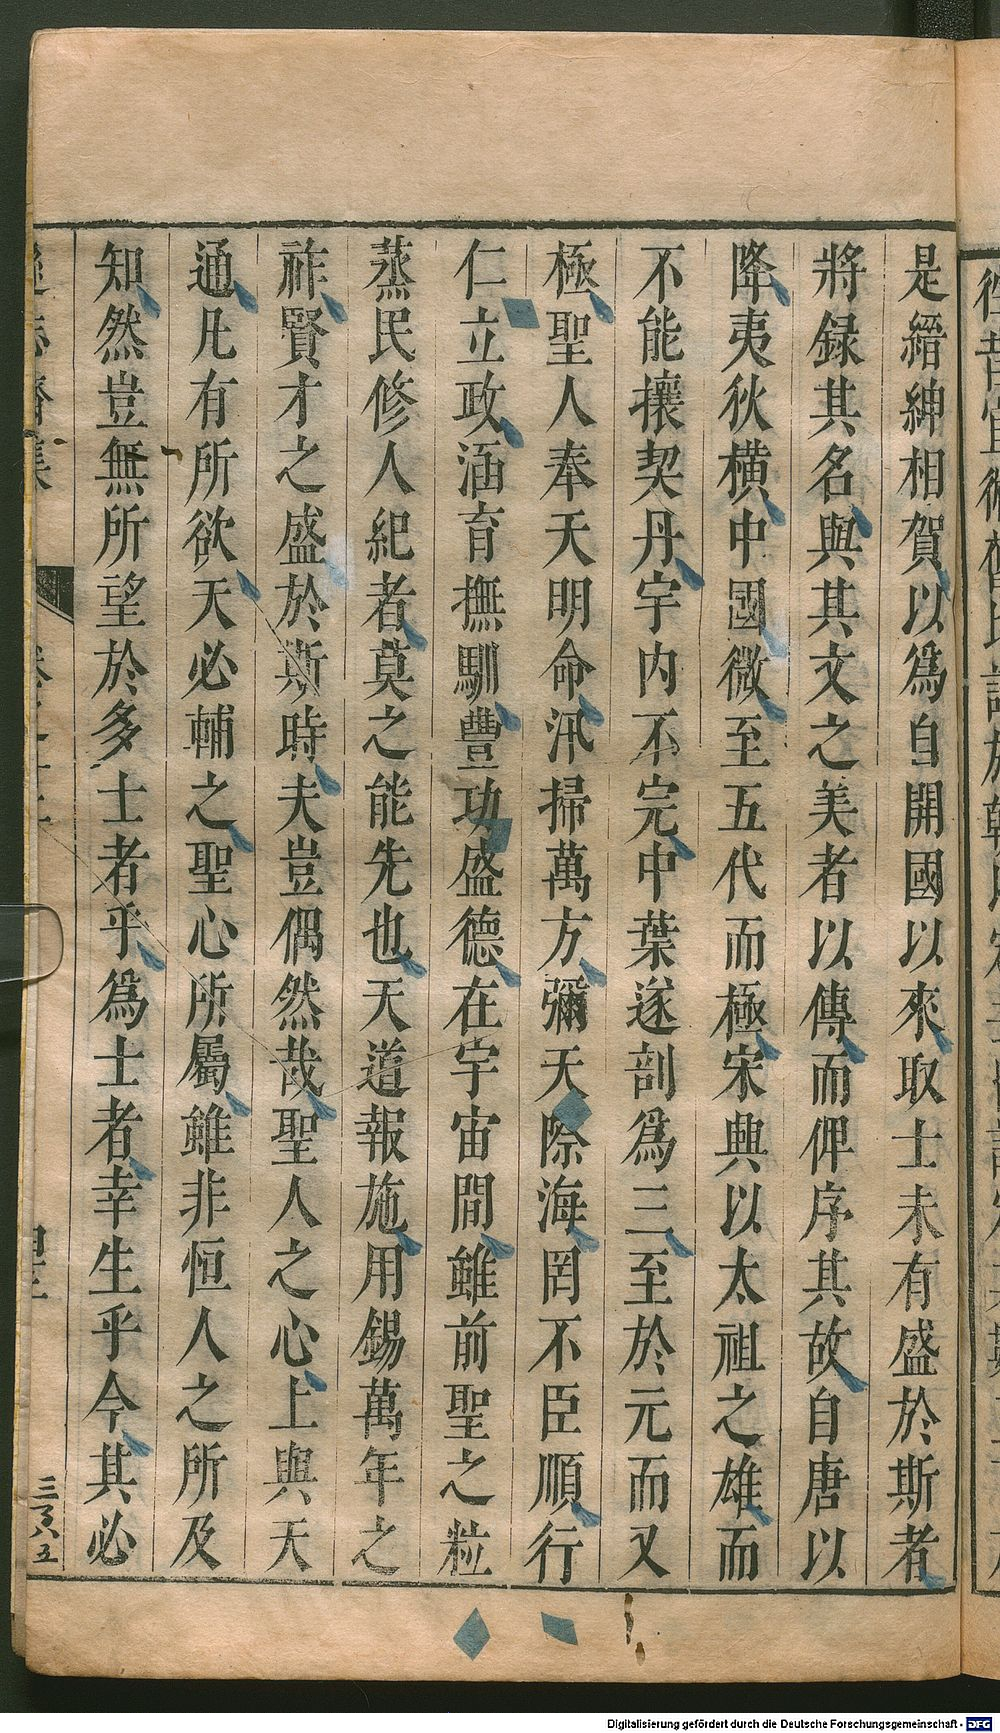 是縉紳相賀以爲自開國以來取士未有盛於斯者
將録其名與其文之美者以傳而俾序其故自唐以
降夷狄橫中國微至五代而極宋興以太祖之雄而
不能攘契丹宇内不完中葉遂剖爲三至於元而又
極聖人奉天明命汛掃萬方彌天際海罔不臣順行
仁立政涵育撫馴豐功盛德在宇宙間雖前聖之粒
蒸民修人紀者莫之能先也天道報施用錫萬年之
祚賢才之盛於斯時夫豈偶然哉聖人之心上與天
通凡有所欲天必輔之聖心所屬雖非恒人之所及
知然豈無所望於多士者乎爲士者幸生乎今其必
三百八五
Digitalisierung gefördert durch die Deutsche Forschungsgemeinschaft - DFG